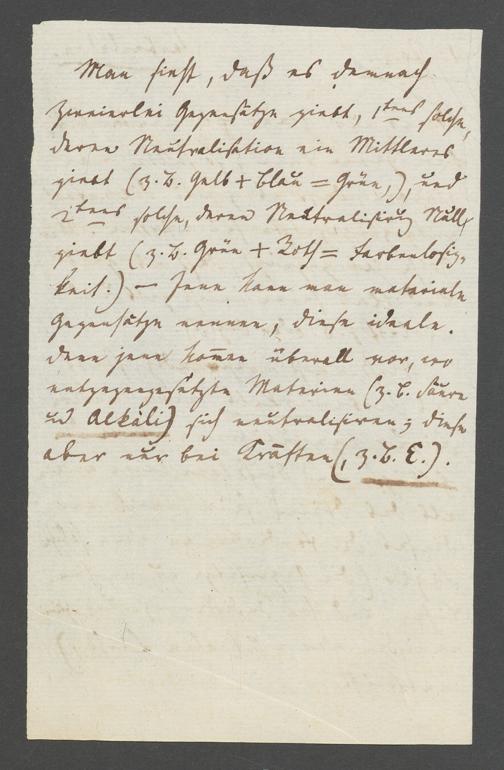 Man sieht, daß es demnach
zweierlei Gegensätze giebt, 1tens solche,
deren Neutralisation ein Mittleres
giebt (z.B. Gelb + Blau = Grün,), und
2tens solche, deren Neutralisirung Null
giebt (z.B. Grün + Roth = Farbenlosig-
keit.) – Jene kann man materiale
Gegensätze nennen, diese ideale.
Denn jene kommen überall vor, wo
entgegengesetzte Materien (z.B. Säure
und Alkali) sich neutralisiren; diese
aber nur bei Kräften (, z.B. E.).